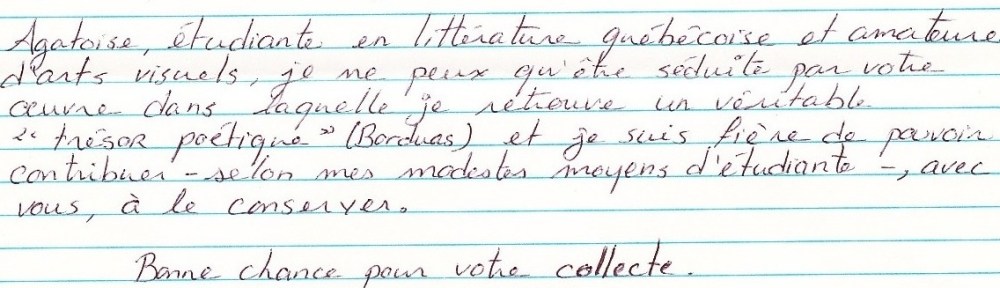 Agatoise, étudiante en littérature québécoise et amateure
d'arts visuels, je ne peux qu'être séduite par votre
œuvre dans laquelle je retrouve un véritable
"trésor poétique" (Borduas) et je suis fière de pouvoir
contribuer - selon mes modestes moyens d'étudiante -, avec
vous, à le conserver.
Bonne chance pour votre collecte.